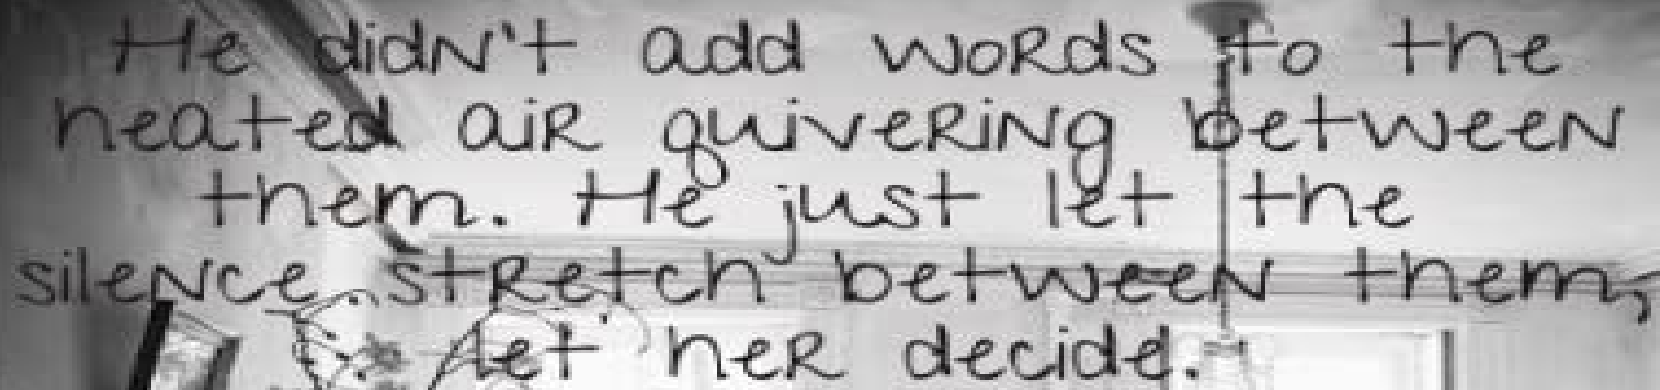 He didn't add words to the
heated air quivering between
them. He just let the
silence stretch between them,
let her decide.